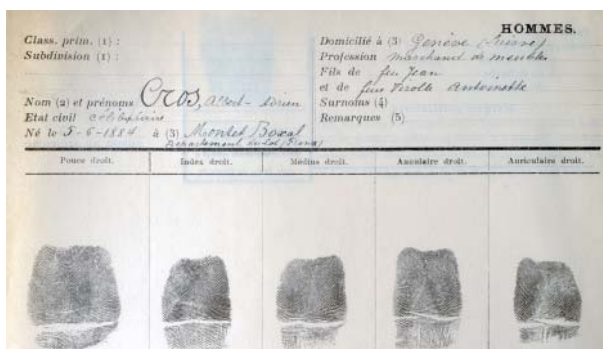 HOMMES.
Class. prim. (1) :
Subdivision (1) :
Nom (2) et prénoms Cros, Albert-Adrien
Etat civil célibataire
Né le 5-6-1884 à (3) Montet Boxal
Département du Lot (France)
Domicilié à (3) Genève (Suisse)
Profession marchand de meubles
Fils de feu Jean
et de feue Antoinette
Surnoms (4)
Remarques (5)
Pouce droit.
Index droit.
Médius droit.
Annulaire droit.
Auriculaire droit.